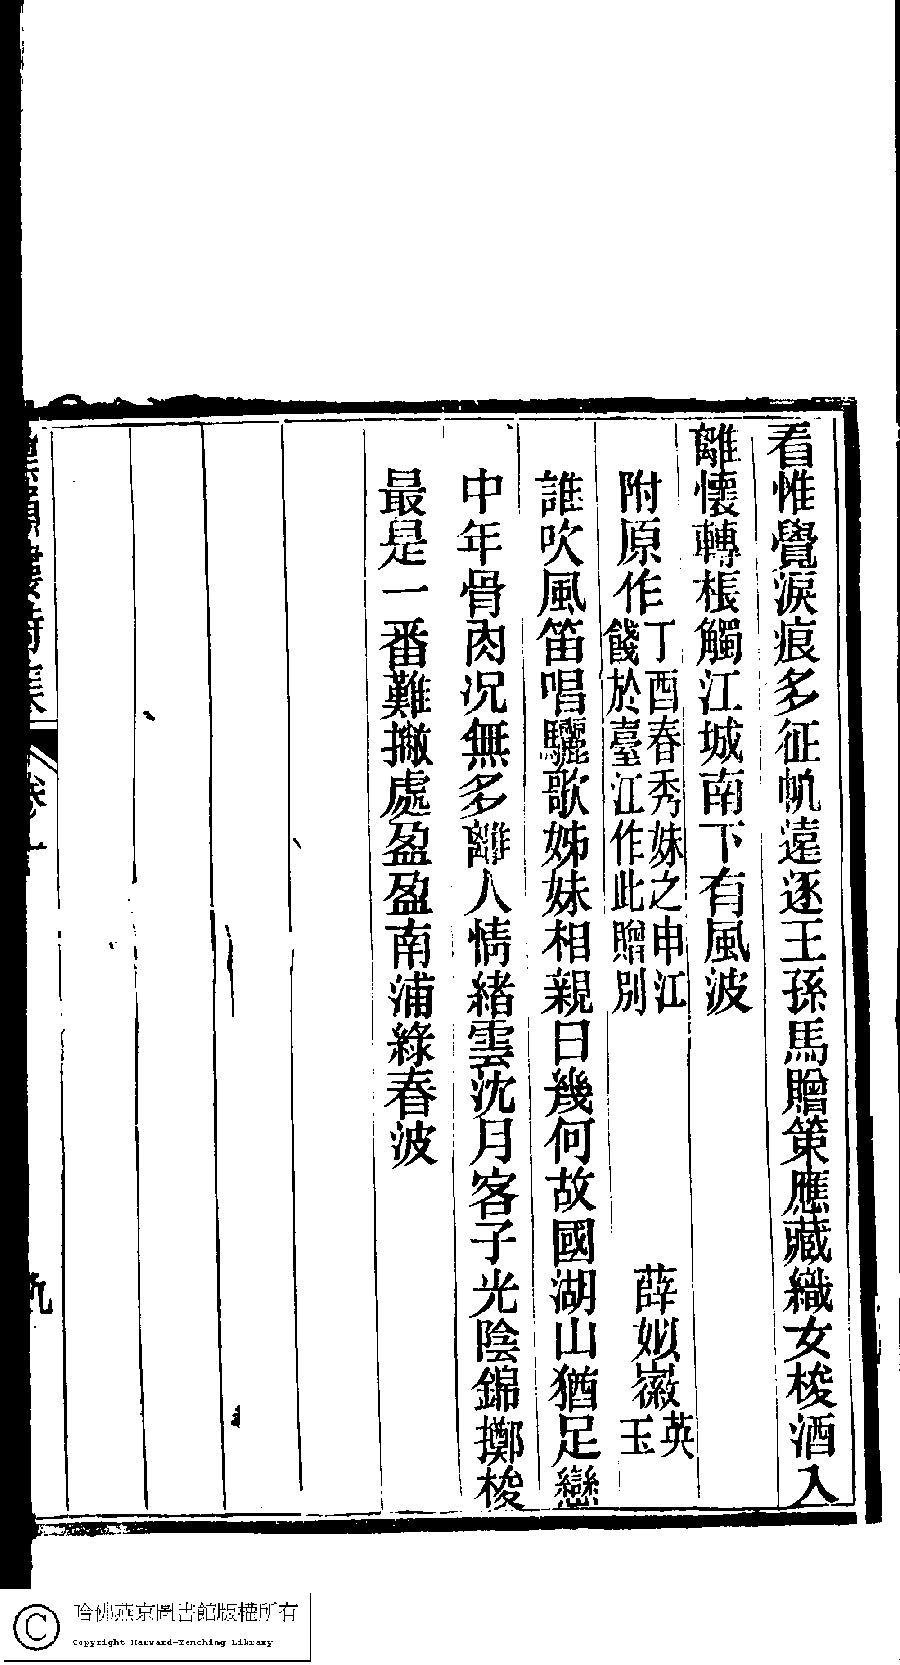 看惟覺淚痕多征帆遠逐王孫馬贈策應藏織女梭酒入
離懷轉棖觸江城南下有風波
附原作 丁酉春秀妹之申江
餞於臺江作此贈別 薛姒徽 英
玉
誰吹風笛唱驪歌姊妹相親日幾何故國湖山猶足戀
中年骨肉況無多離人情緒雲沈月客子光陰錦擲梭
最是一番難撇處盈盈南浦綠春波
樓詩集
卷
九
哈佛燕京圖書館版權所有
Copyright Harvard-Yenching Library